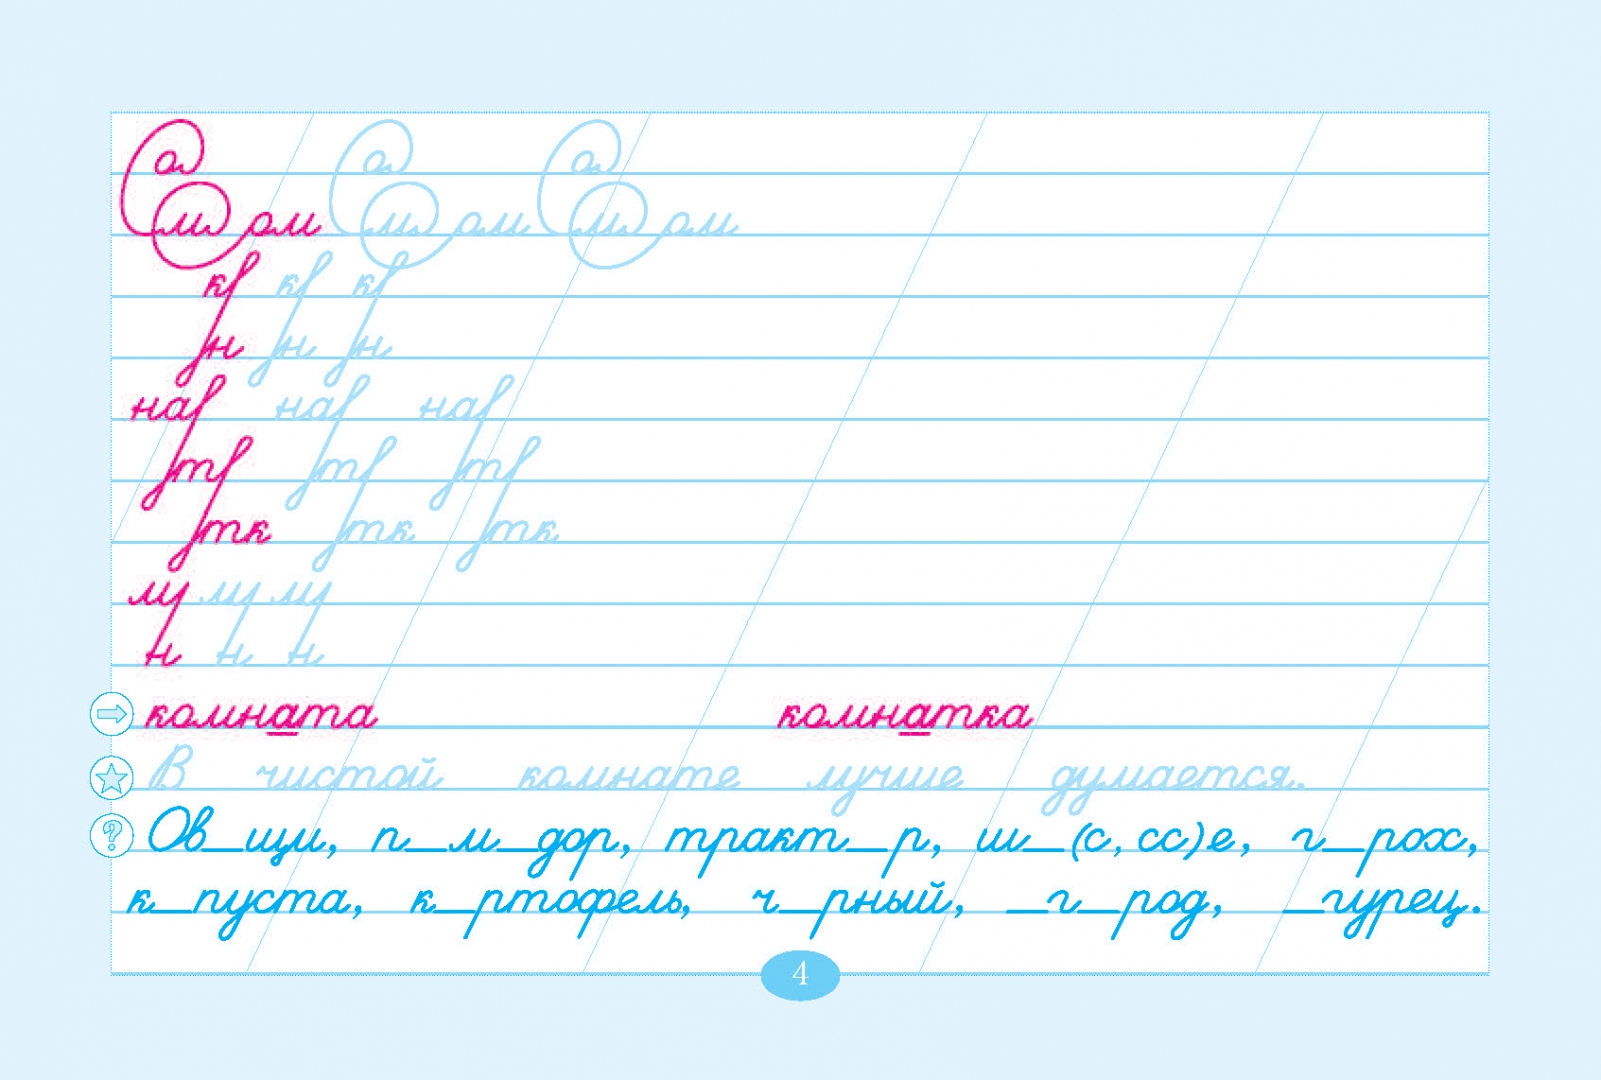 а а а
м ом м ом м ом
к к к
н н н
на на на
т т т
тк тк тк
му му му
н н н
комната комнатка
В чистой комнате лучше думается.
Ов_щи, п_м_дор, тракт_р, ш_(с, сс)е, г_рох,
к_пуста, к_ртофель, ч_рный, _г_род, _гурец.
4